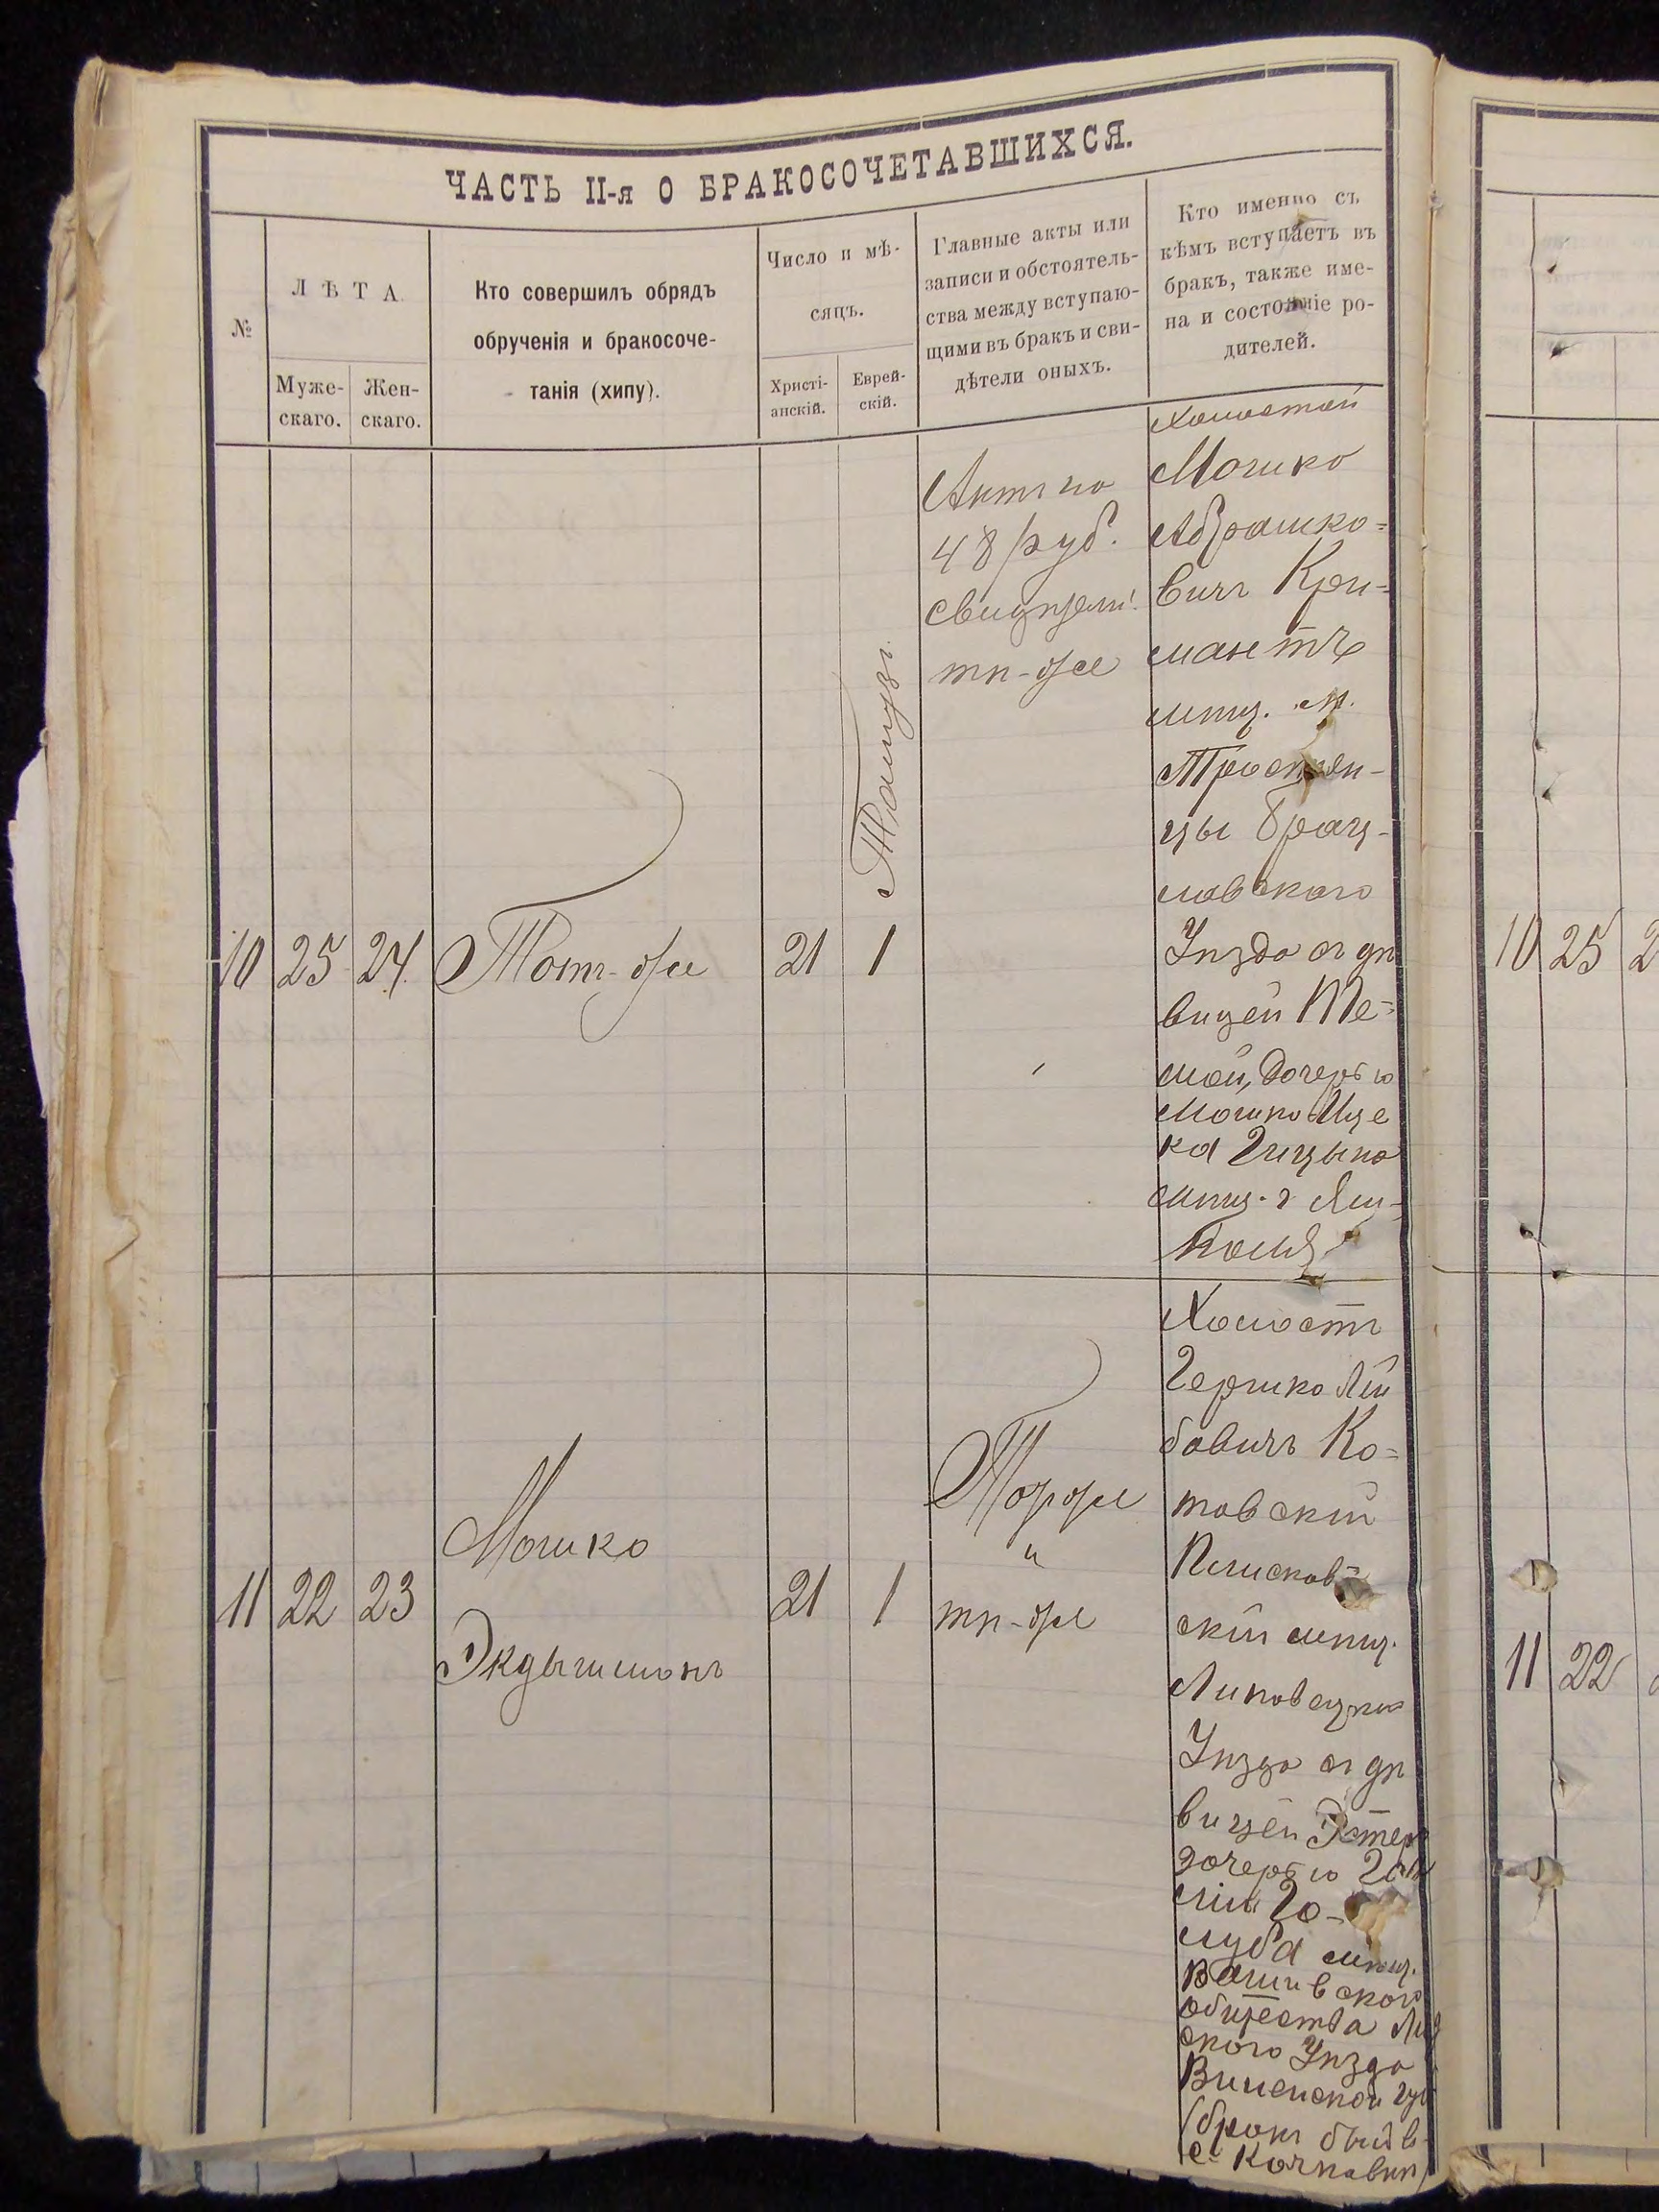 ЧАСТЬ II-я О БРАКОСОЧЕТАВШИХСЯ.
№
ЛѢТА.
Муже-
скаго.
Жен-
скаго.
Кто совершилъ обрядъ
обрученія и бракосоче-
танія (хипу).
Число и мѣ-
сяцъ.
Христі-
анскій.
Еврей-
скій.
Главные акты или
записи и обстоятель-
ства между вступаю-
щими въ бракъ и сви-
дѣтели оныхъ.
Кто именно съ
кѣмъ вступаетъ въ
бракъ, также име-
на и состояніе ро-
дителей.
10
25
24
Тотъ-же
21
1
Тамузъ
Актъ на
48 руб.
свидѣтели
тѣ-же
Холостой
Мошко
Абрашко-
вичъ Кри-
мантъ
мѣщ. м.
Тростян-
цы Брац-
лавскаго
Уѣзда съ дѣ
вицей Те-
мой, дочерью
Мошко Ице
ка Гицыка
мѣщ. г Ям-
поля
11
22
23
Мошко
Экдышманъ
21
1
Тотже
и
тѣ-же
Холостъ
Гершко Лей
бовичъ Ко-
товскій
скій мѣщ.
Липовецкаго
Уѣзда съ дѣ
вицей Эстер
дочерью
Го-
луба мѣщ.
общества Лид
скаго Уѣзда
Виленской губ
(бракъ былъ въ
с.
10
25
2
11
22